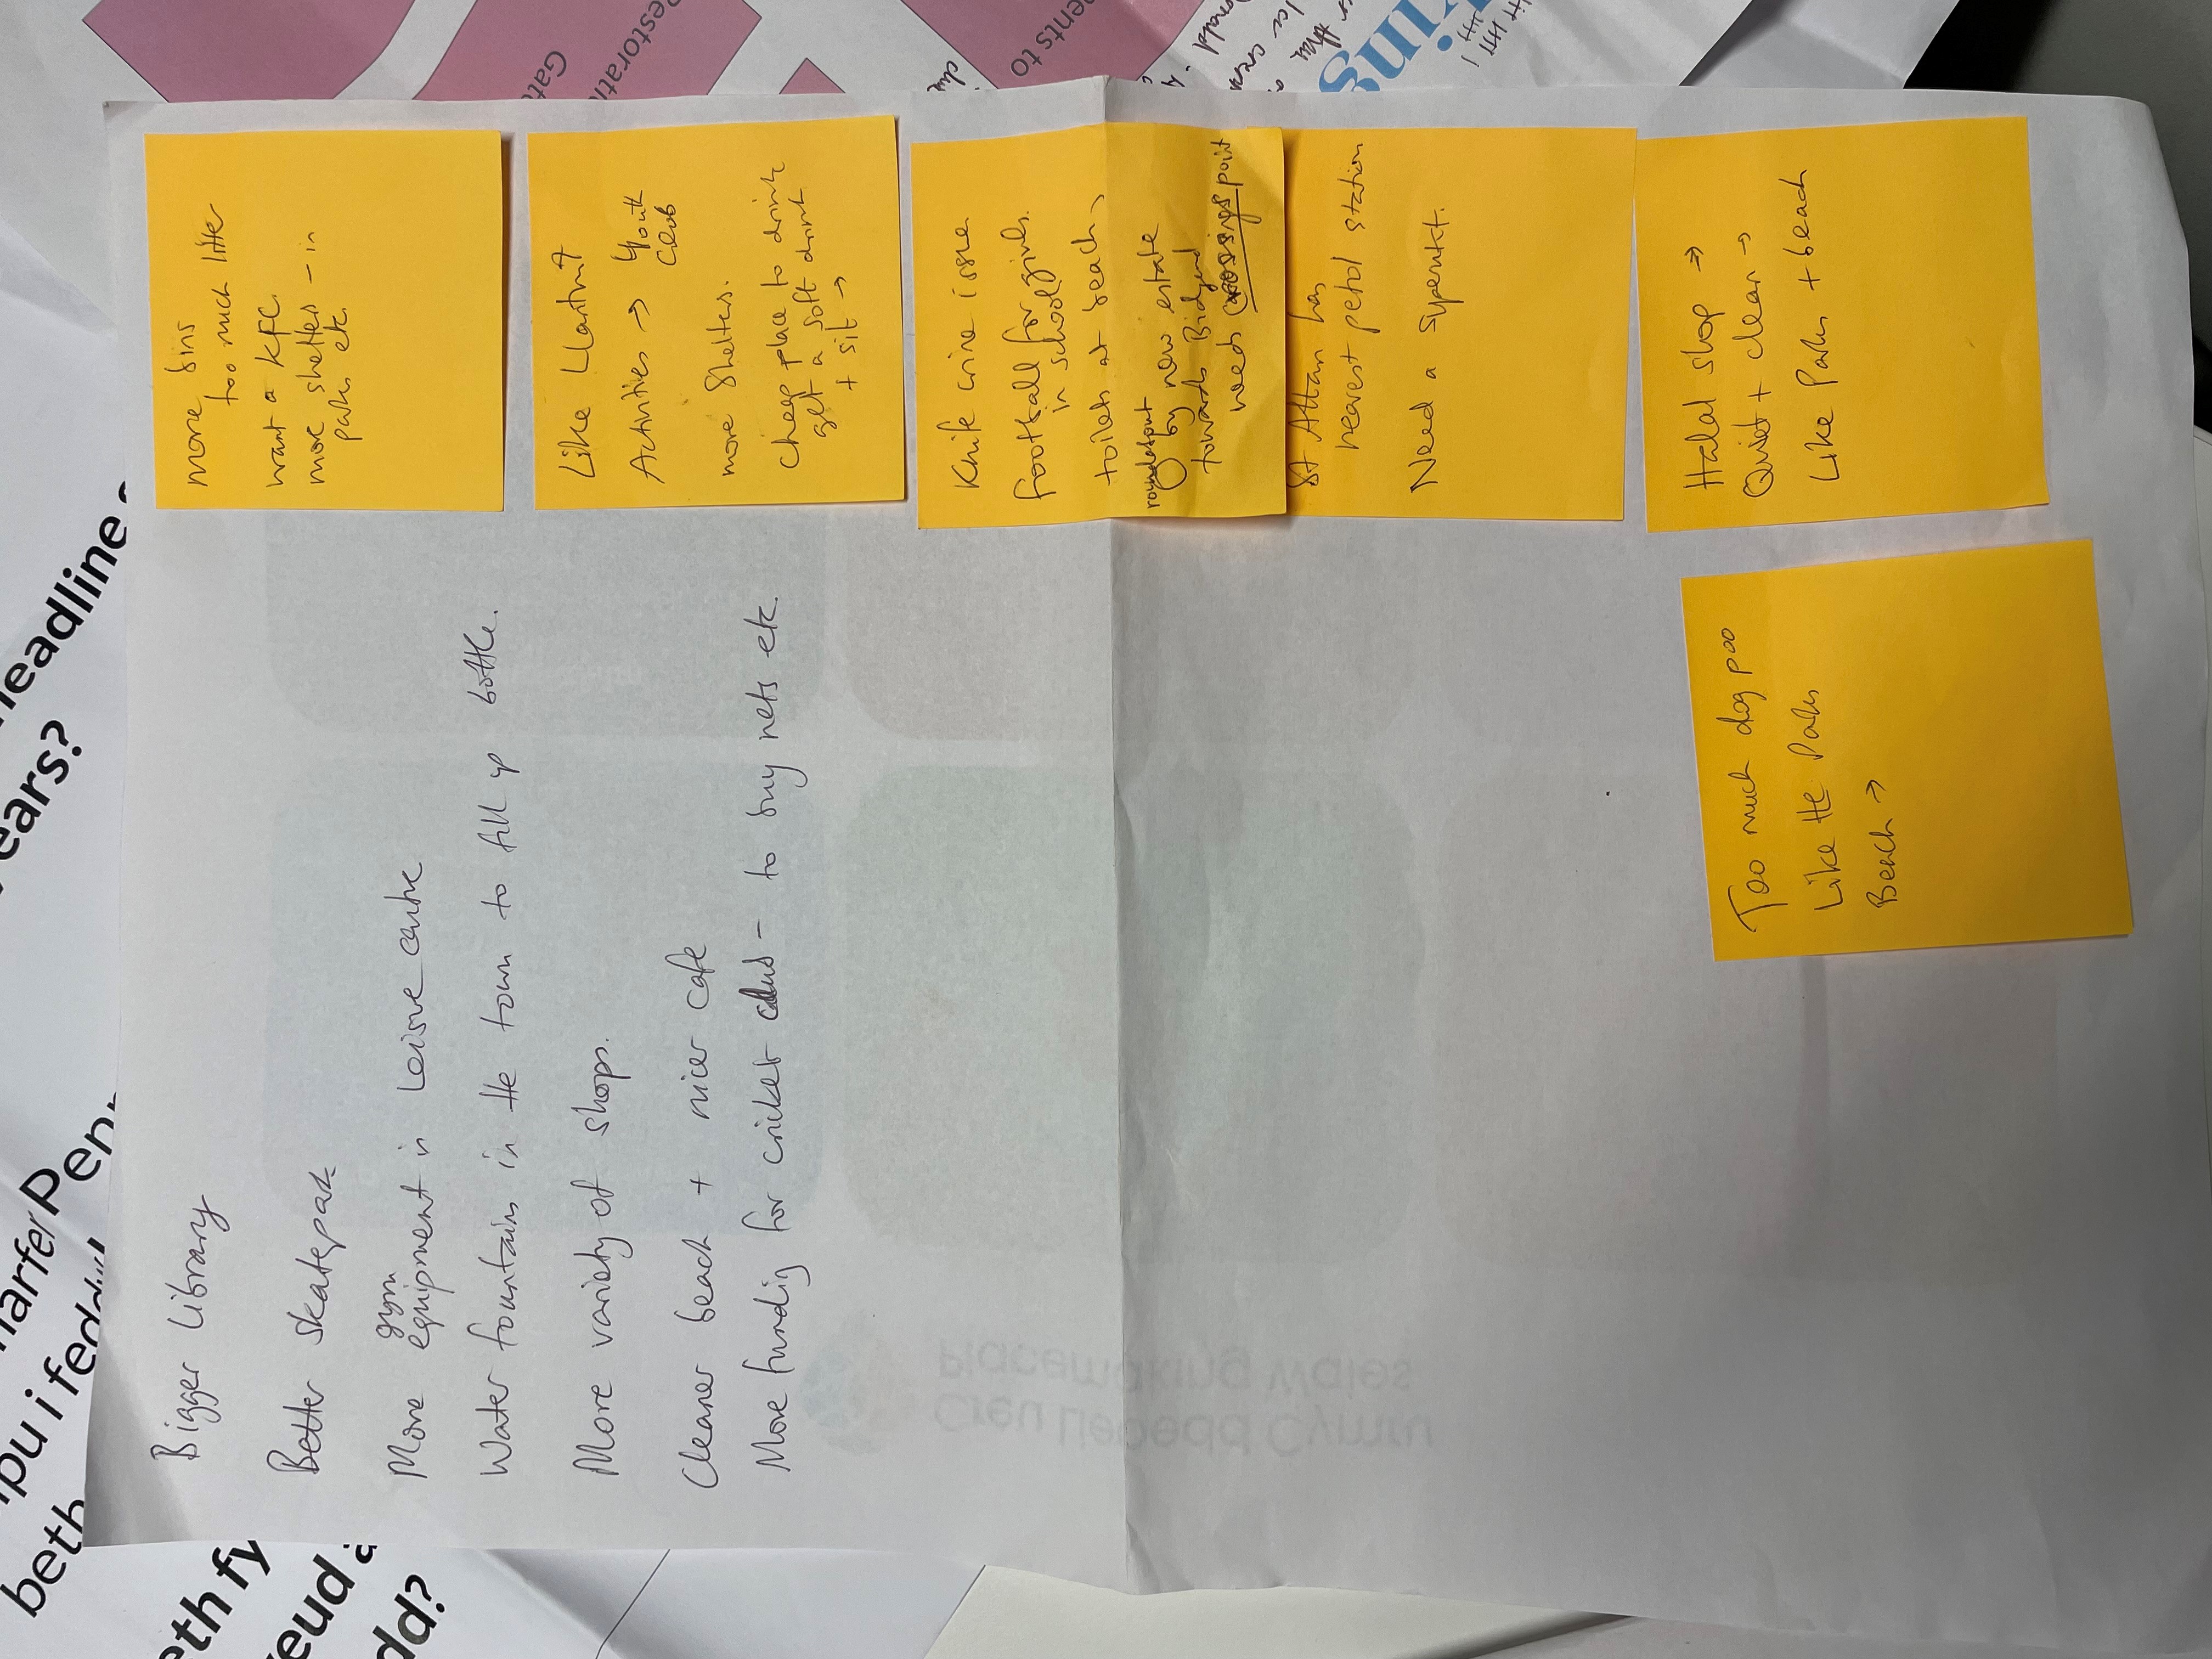 Bigger Library
Better Skatepark
gym
More equipment in Leisure centre
Water fountains in the town to fill up bottle.
More variety of shops.
Cleaner beach + nicer cafe
More funding for cricket club - to buy nets etc.
More bins
too much litter
want a KFC.
more shelters - in
parks etc.
Like Llantwit
Activities → Youth
club
more Shelters.
cheap place to drink
get a soft drink
+ sit →
Knife crime issue
football for girls.
in school
toilets at beach,
roundabout
by new estate
towards Bridgend
needs crossings point
St Athan has
nearest petrol station
Need a Spermkt.
Halal shop →
Quiet + clean →
Like Parks + beach
Too much dog poo
Like the Parks
Beach →
Placemaking Wales
Creu Lleoedd Cymru
headline
ears?
beth
eth fy
dd?
Restorati
Gat
ents to